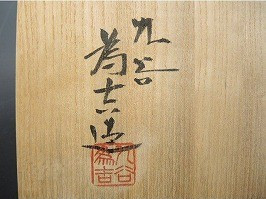 九谷
為吉造
九谷為吉